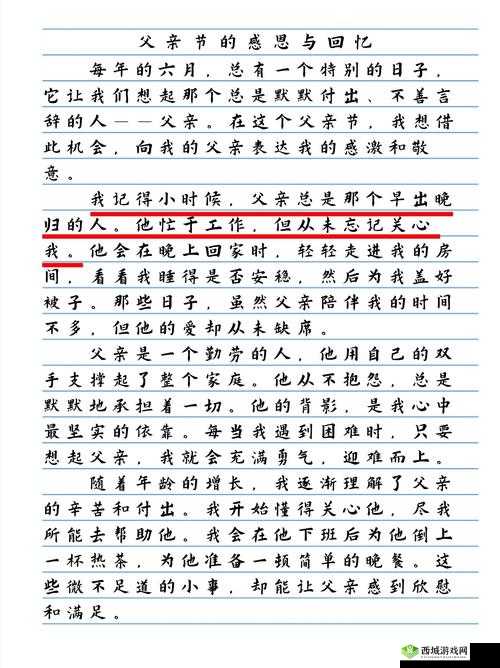 父亲节的感恩与回忆
每年的六月，总有一个特别的日子，
它让我们想起那个总是默默付出、不善言
辞的人——父亲。在这个父亲节，我想借
此机会，向我的父亲表达我的感激和敬
意。
我记得小时候，父亲总是那个早出晚
归的人。他忙于工作，但从未忘记关心
我。他会在晚上回家时，轻轻走进我的房
间，看看我睡得是否安稳，然后为我盖好
被子。那些日子，虽然父亲陪伴我的时间
不多，但他的爱却从未缺席。
父亲是一个勤劳的人，他用自己的双
手支撑起了整个家庭。他从不抱怨，总是
默默地承担着一切。他的背影，是我心中
最坚实的依靠。每当我遇到困难时，只要
想起父亲，我就会充满勇气，迎难而上。
随着年龄的增长，我逐渐理解了父亲
的辛苦和付出。我开始懂得关心他，尽我
所能去帮助他。我会在他下班后为他倒上
一杯热茶，为他准备一顿简单的晚餐。这
些微不足道的小事，却能让父亲感到欣慰
和满足。
西城游戏网